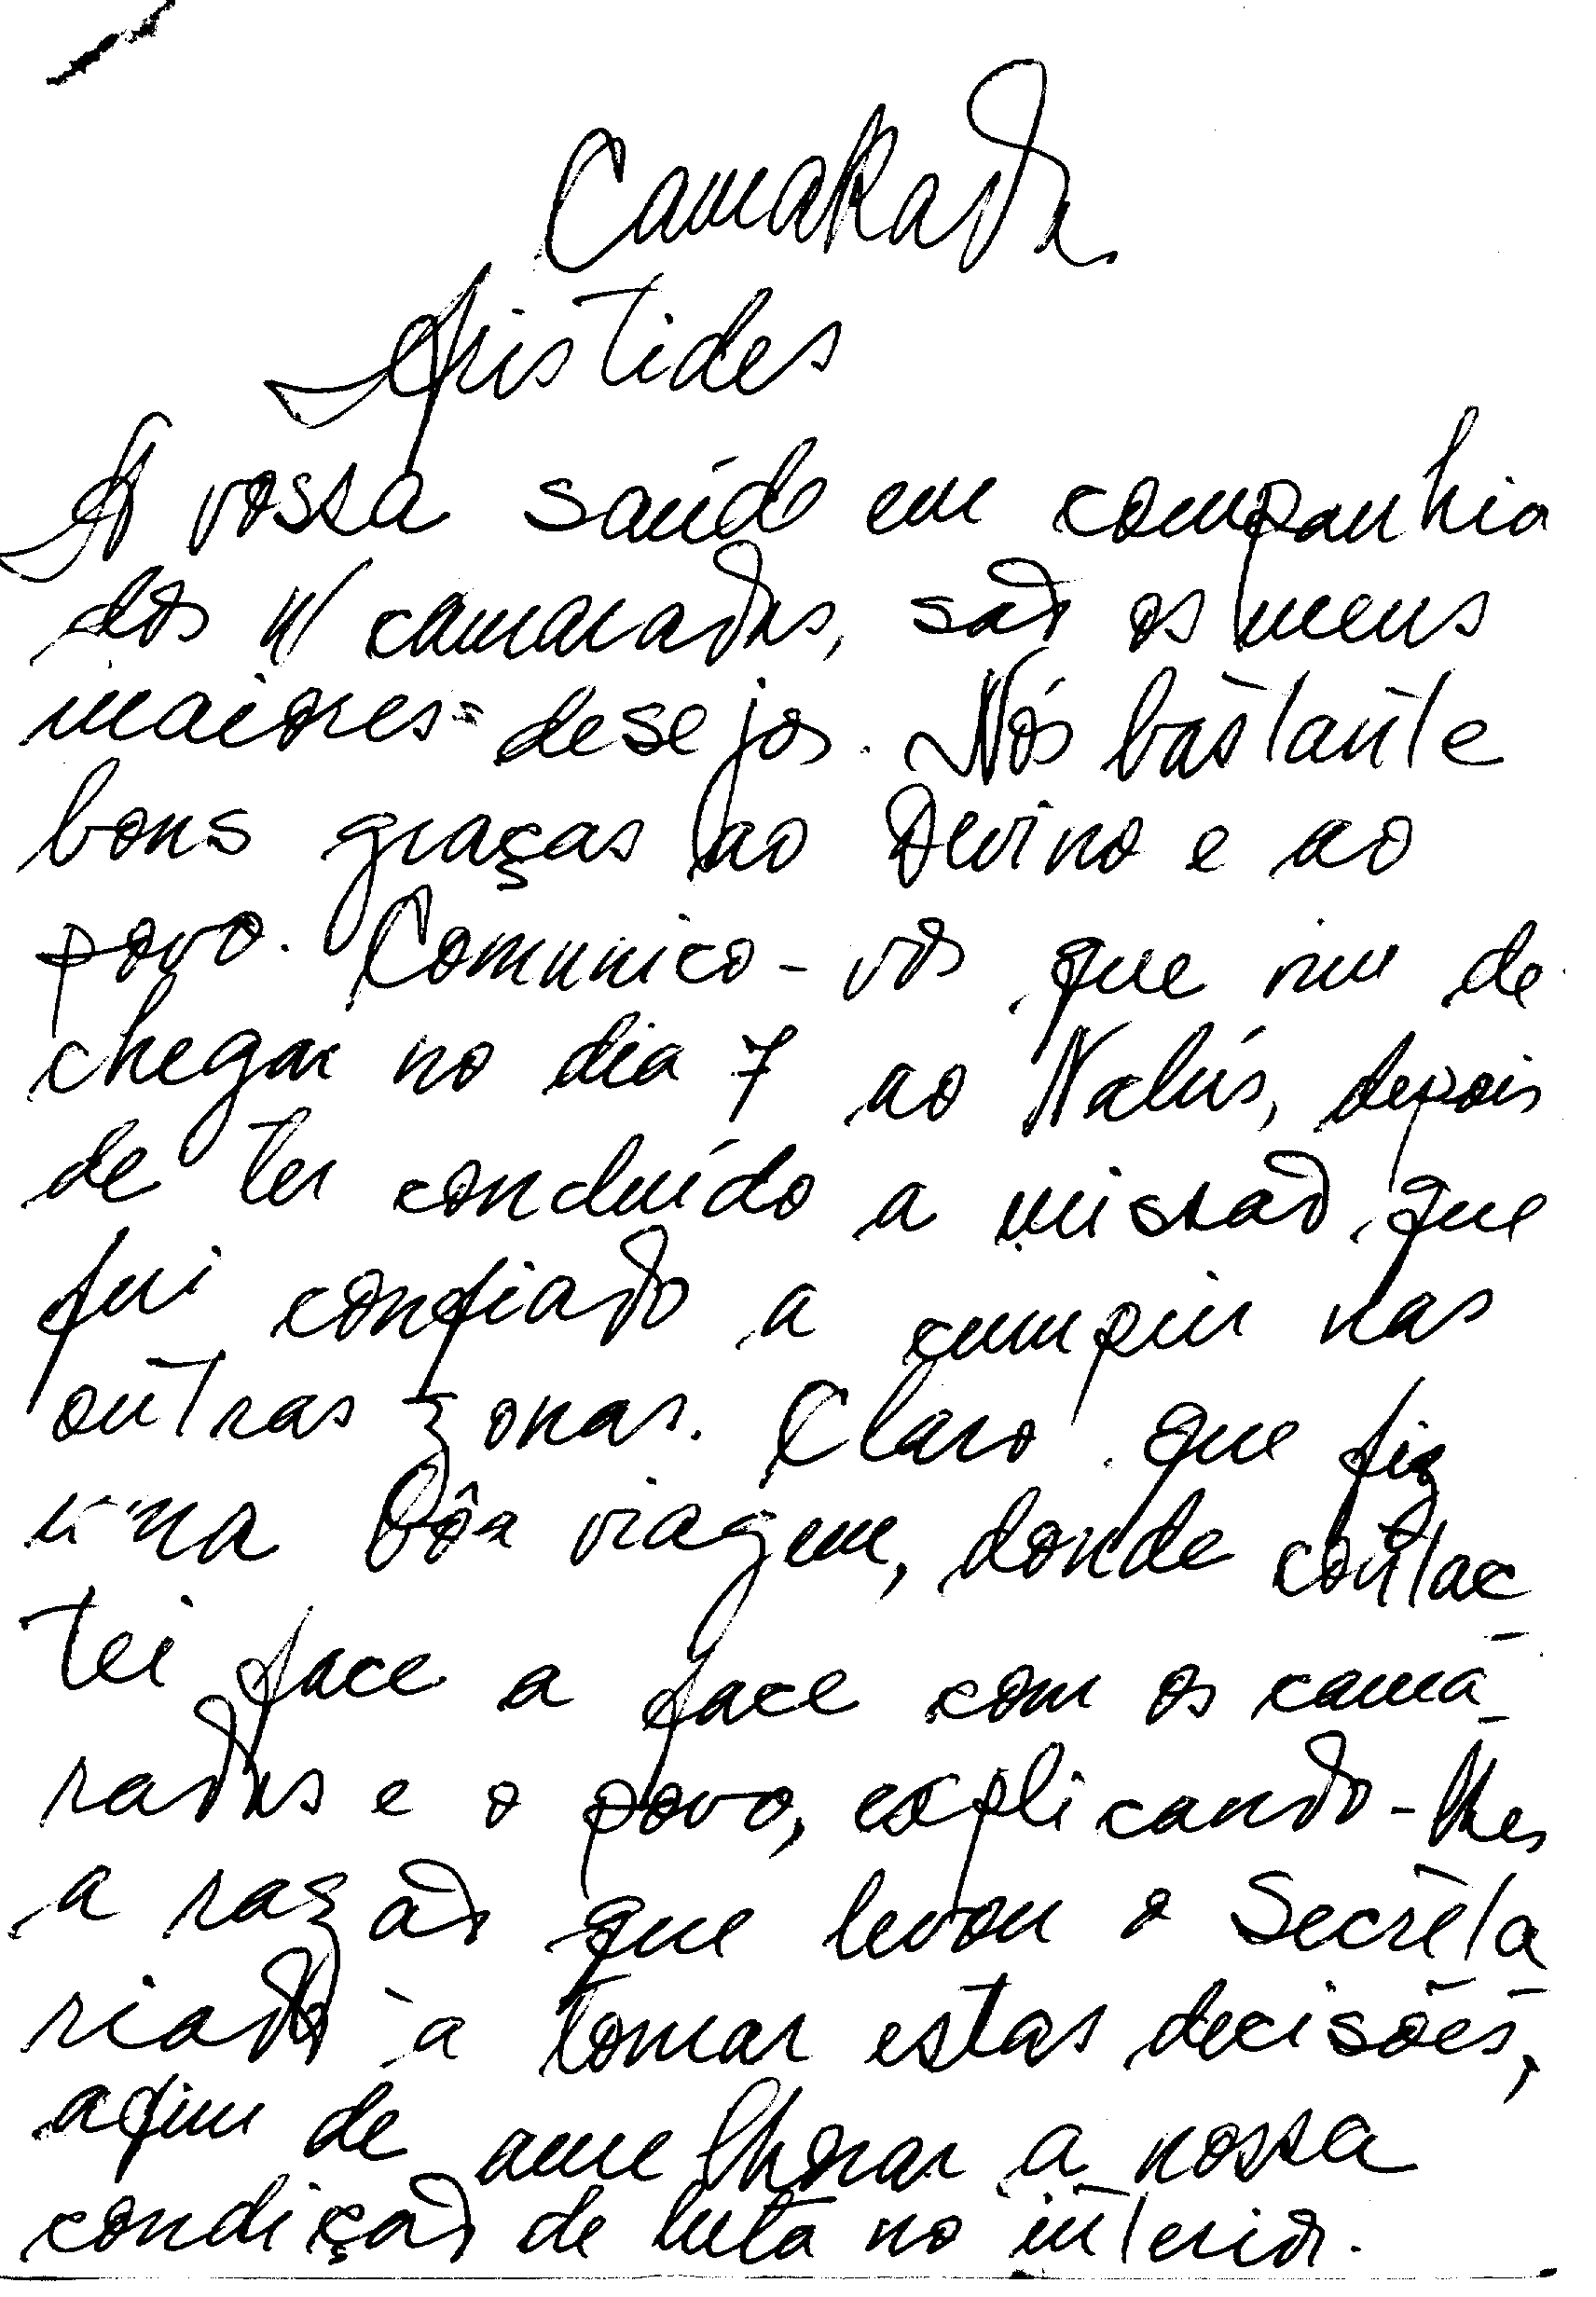 Camarada
Aristides
A vossa saúde em companhia
dos n/ camaradas, são os meus
maiores desejos. Nós bastante
bons graças ao Devino e ao
povo. Comunico-vos que vim de
chegar no dia 7 ao Nalús, depois
de ter concluído a missão que
fui confiado a cumprir nas
outras zonas. Claro que fiz
uma bôa viagem, donde contac
tei face a face com os cama-
radas e o povo, explicando-lhes
a razão que levou o Secreta
riado à tomar estas decisões,
afim de amelhorar a nossa
condição de luta no interior.